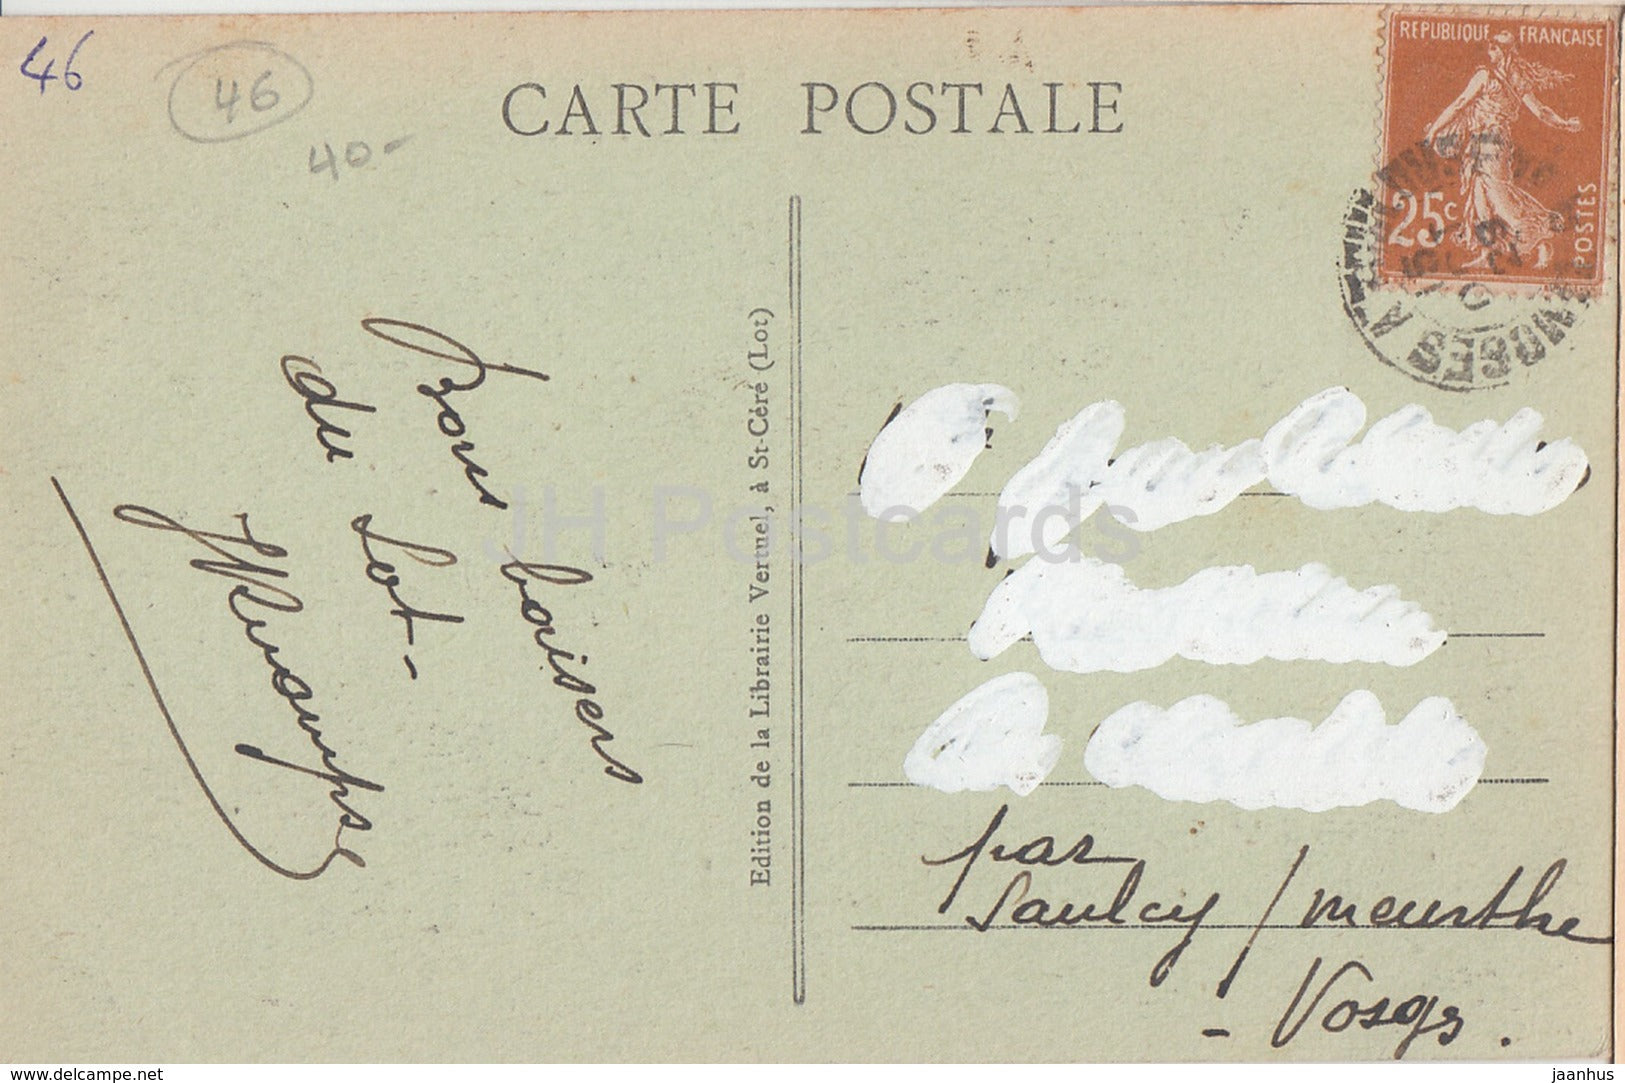 46
46
40-
CARTE POSTALE
REPUBLIQUE FRANÇAISE
25c
POSTES
Bons baisers
du Lot-
Edition de la Librairie Vertuel, à St-Céré (Lot)
JH Postcards
par
Saulcy / meurthe
- Vosges.
www.delcampe.net
jaanhus